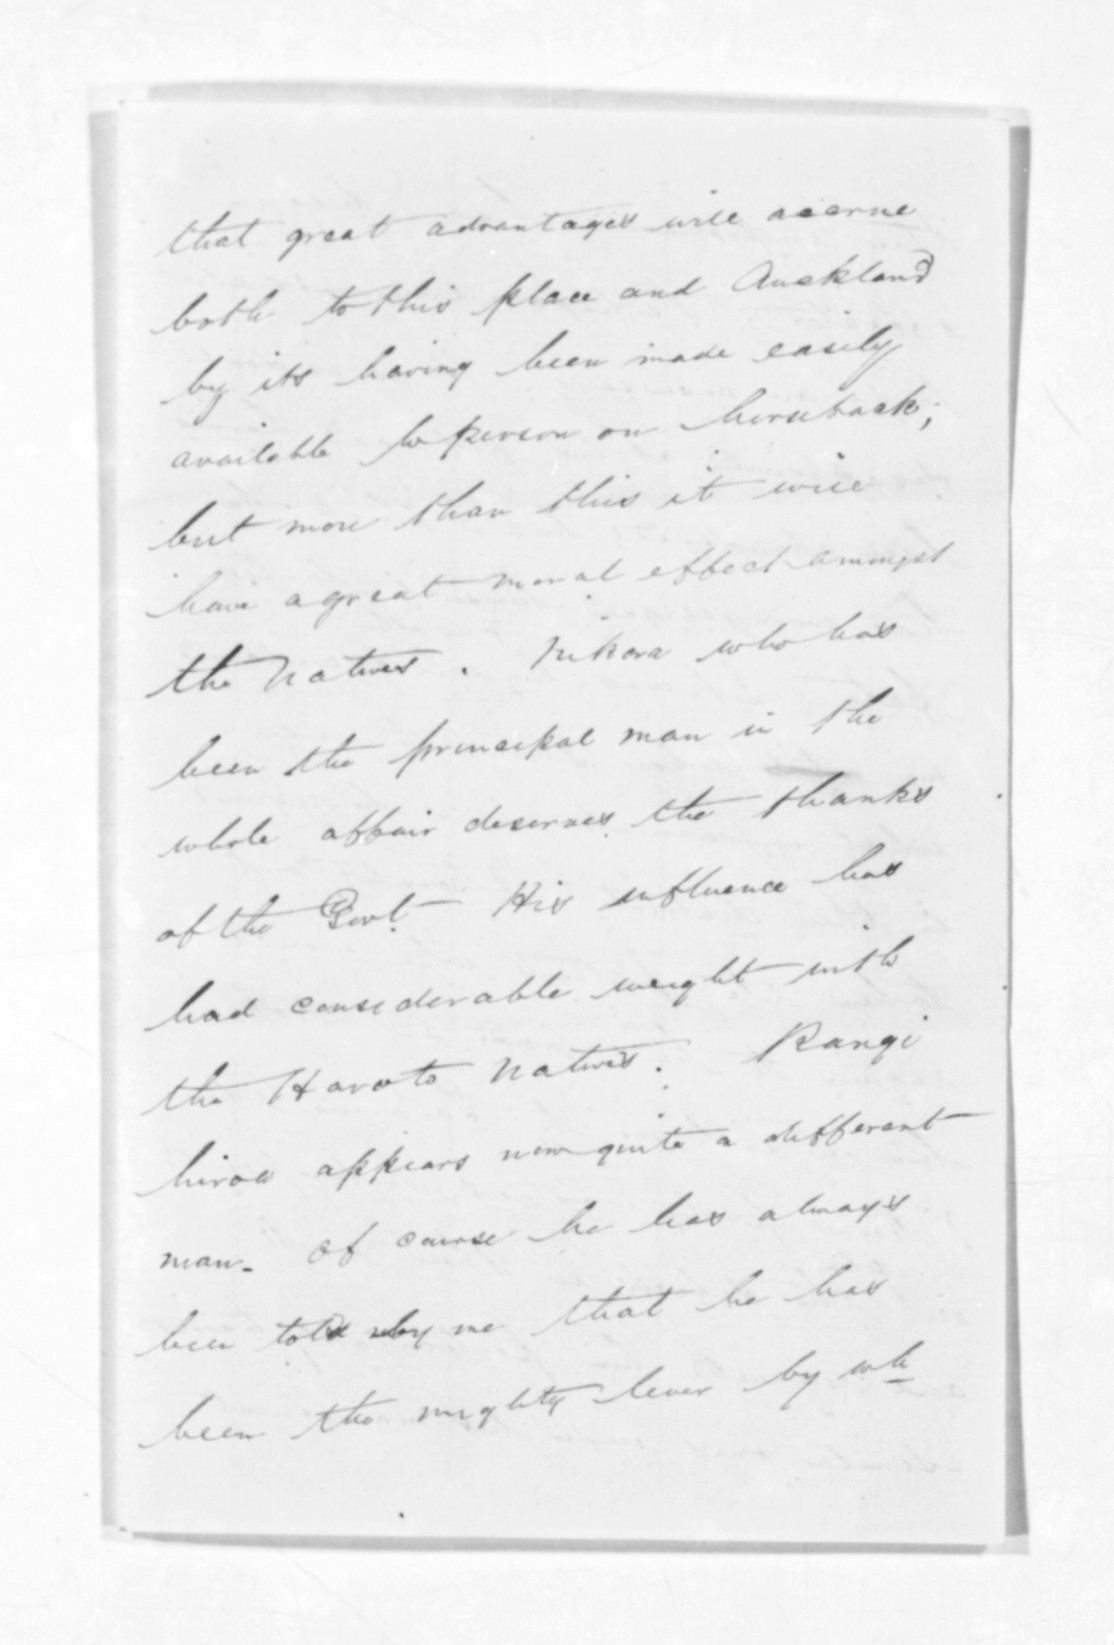 that great advantages will accrue
both to this place and Auckland
by its having been made easily
available to person on horseback;
but more than this it will
have a great moral effect amongst
the natives. Nikora who has
been the principal man in the
whole affair deserves the thanks
of the Govt. His influence has
had considerable weight with
the Haroto natives. Rangi
hiroa appears now quite a different
man. Of course he has always
been told by me that he has
been the mighty lever by wh